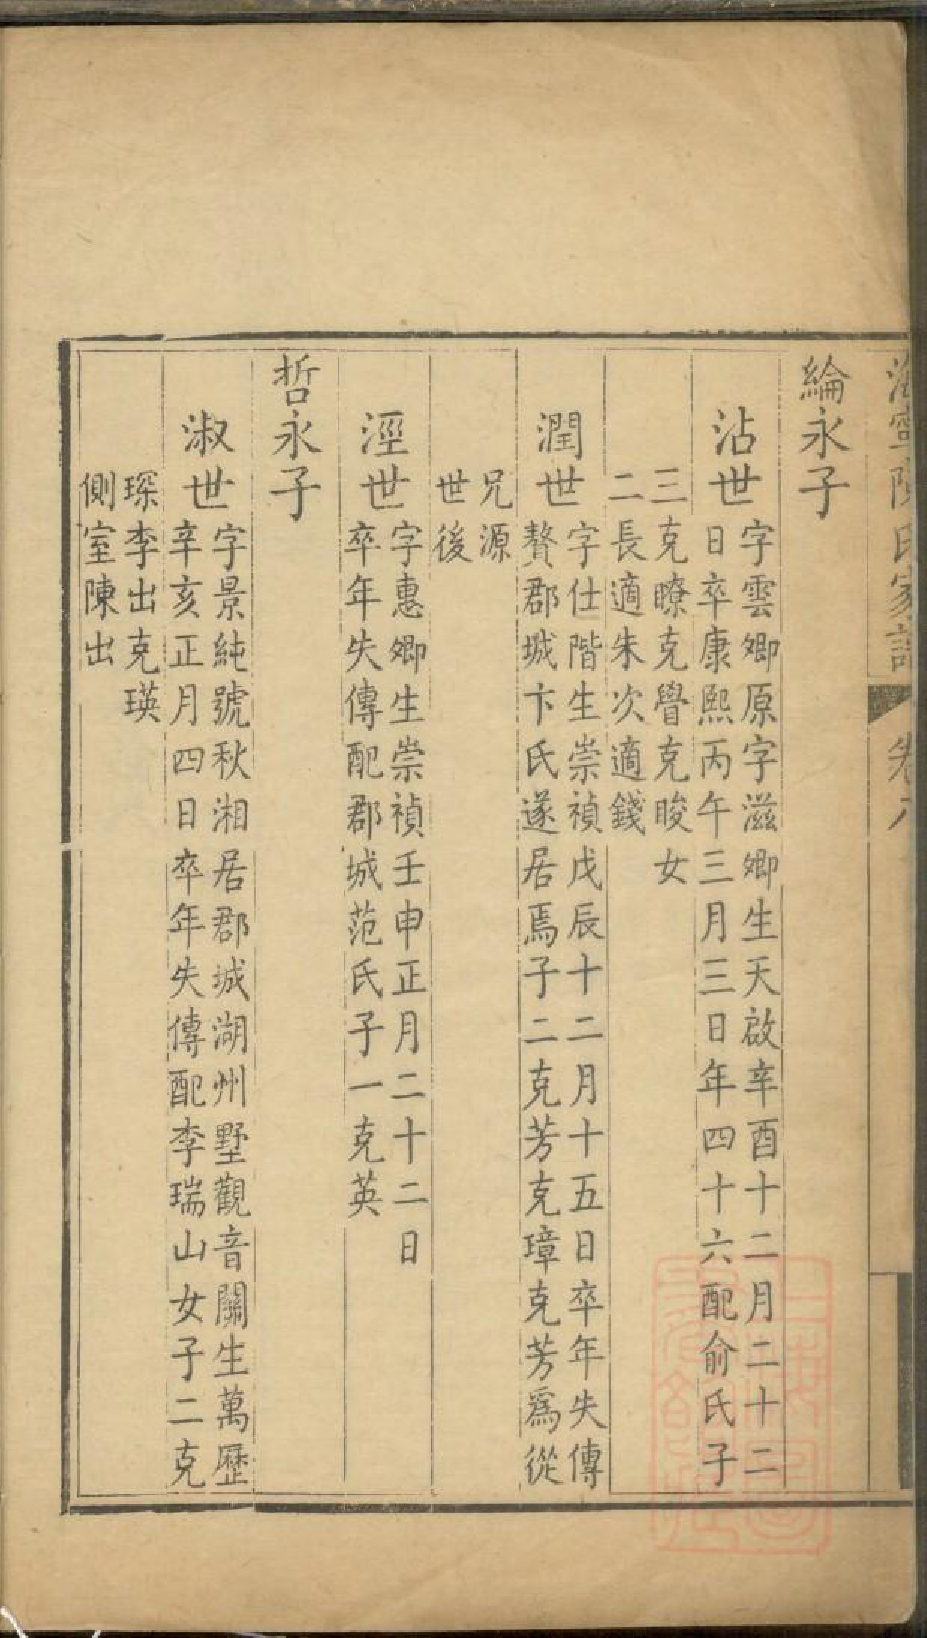 綸永子
沾世
字雲卿原字滋卿生天啟辛酉十二月二十二
日卒康熙丙午三月三日年四十六配俞氏子
三克瞭克覺克晙女
二長適朱次適錢
潤世
字仕階生崇禎戊辰十二月十五日卒年失傳
贅郡城卞氏遂居焉子二克芳克璋克芳爲從
兄源
世後
漟世
字惠卿生崇禎壬申正月二十二日
卒年失傳配郡城范氏子一克英
哲永子
淑世
字景純號秋湘居郡城湖州墅觀音關生萬歷
辛亥正月四日卒年失傳配李瑞山女子二克
琛李出克瑛
側室陳出